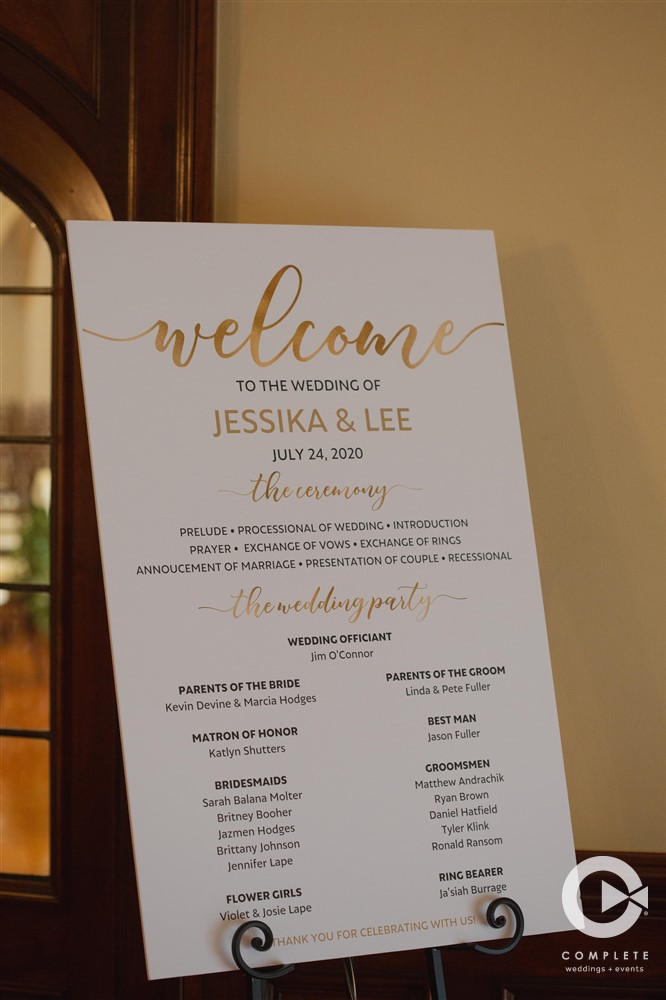 welcome
TO THE WEDDING OF
JESSIKA & LEE
JULY 24, 2020
the ceremony
PRELUDE • PROCESSIONAL OF WEDDING • INTRODUCTION
PRAYER • EXCHANGE OF VOWS • EXCHANGE OF RINGS
ANNOUCEMENT OF MARRIAGE • PRESENTATION OF COUPLE • RECESSIONAL
the wedding party
WEDDING OFFICIANT
Jim O'Connor
PARENTS OF THE BRIDE
Kevin Devine & Marcia Hodges
MATRON OF HONOR
Katlyn Shutters
BRIDESMAIDS
Sarah Balana Molter
Britney Booher
Jazmen Hodges
Brittany Johnson
Jennifer Lape
FLOWER GIRLS
Violet & Josie Lape
PARENTS OF THE GROOM
Linda & Pete Fuller
BEST MAN
Jason Fuller
GROOMSMEN
Matthew Andrachik
Ryan Brown
Daniel Hatfield
Tyler Klink
Ronald Ransom
RING BEARER
Ja'siah Burrage
THANK YOU FOR CELEBRATING WITH US!
COMPLETE
weddings + events